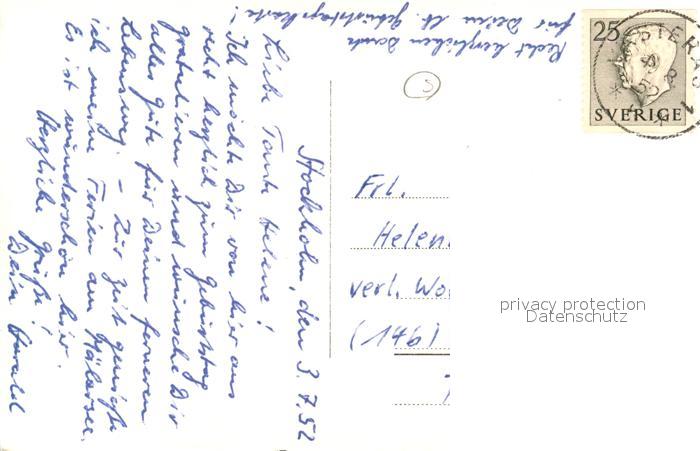 Stockholm, den 3.7.52
Liebe Tante Helene!
Ich möchte Dir von hier aus
recht herzlich zum Geburtstag
gratulieren und wünsche Dir
alles Gute für Deinen ferneren
Lebensweg. – Zur Zeit genieße
ich meine Ferien am Mälarsee.
Es ist wunderschön hier.
Herzliche Grüße!
Dein
Recht herzlichen Dank
für Deine lb. Geburtstagskarte!
S
25
SVERIGE
Frl.
Helen
verl. Wo
(14b)
privacy protection
Datenschutz